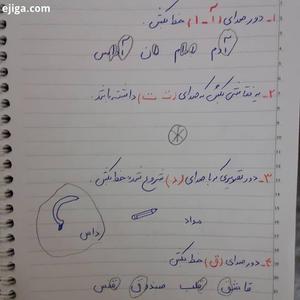 ejiga.com
۱- دور صدای (آ - ا) خط بکش.
آدم مادر نان آناناس
۲- یه نقاشی بکش که صدای (ت ت) داشته باشد.
۳- دور تصویری که با صدای (د) شروع شده خط بکش.
مداد
داس
۴- دور صدای (ق) خط بکش.
قاشق قلب صندوق قفس